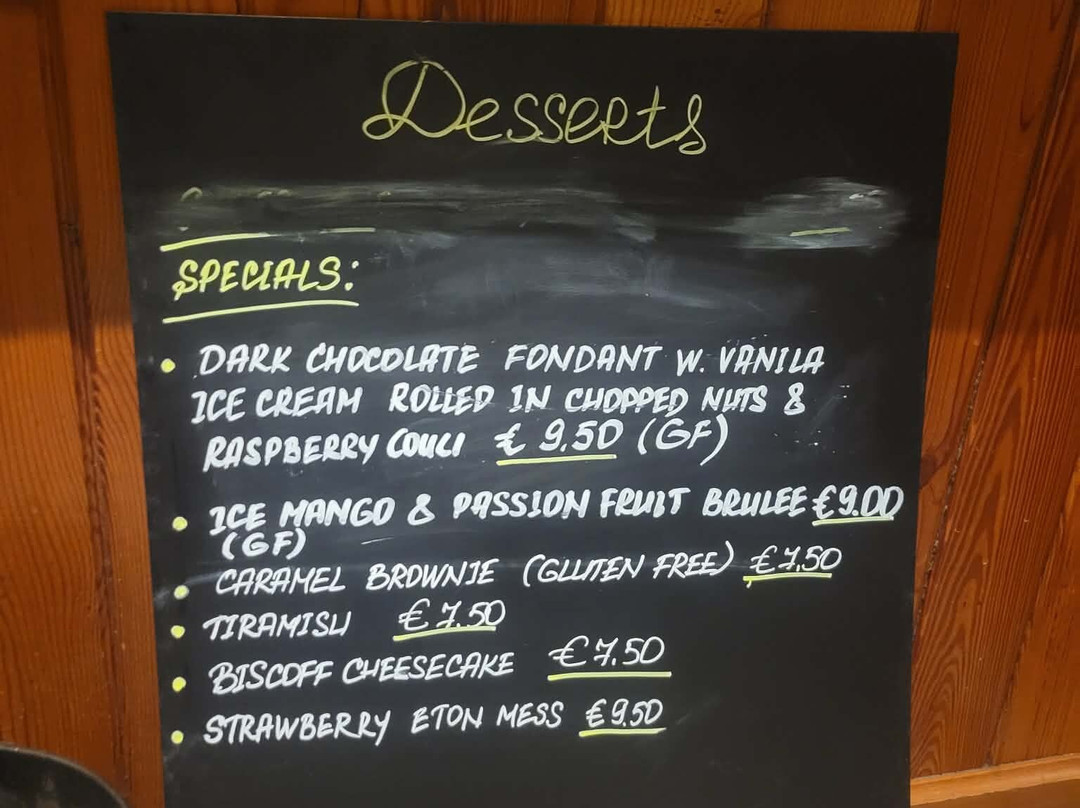 Desserts
SPECIALS:
• DARK CHOCOLATE FONDANT W. VANILA
ICE CREAM ROLLED IN CHOPPED NUTS &
RASPBERRY COULI € 9.50 (GF)
• ICE MANGO & PASSION FRUIT BRULEE €9.00
(GF)
• CARAMEL BROWNIE (GLUTEN FREE) €7.50
• TIRAMISU €7.50
• BISCOFF CHEESECAKE €7.50
• STRAWBERRY ETON MESS €9.50